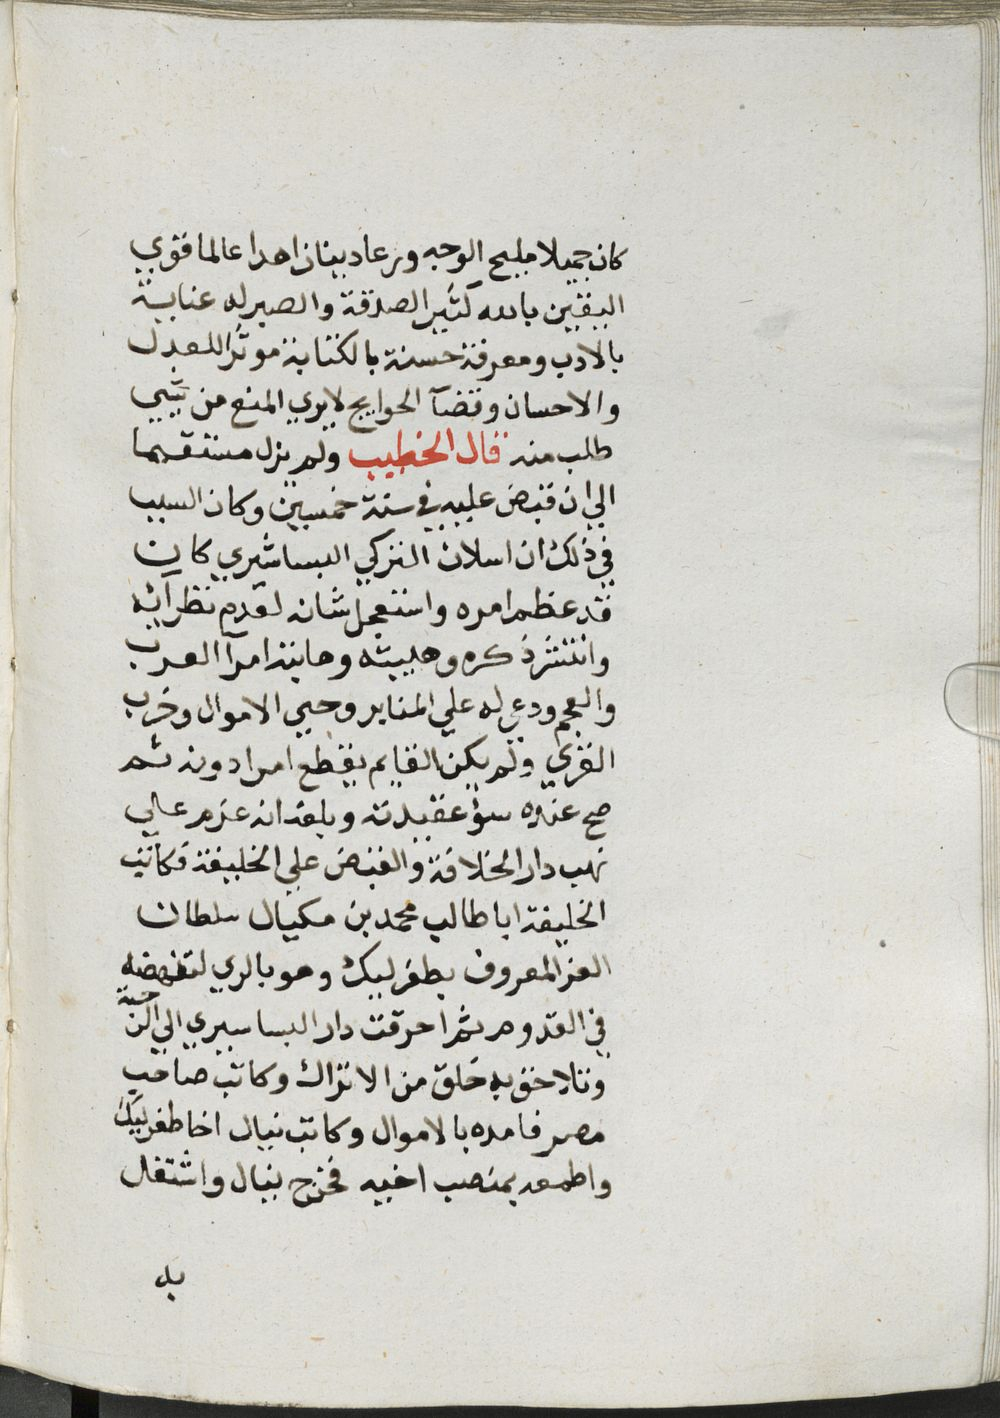 كان جميلا مليح الوجه ورعا دينا زاهدا عالما قوي
اليقين بالله كثير الصدقة والصبر له عناية
بالادب ومعرفة حسنة بالكتابة موثرا للعدل
والاحسان وقضآ الحوايج لايري المنع من شيي
طلب منه قال الخطيب ولم يزل مستقيما
الي ان قبض عليه في سنة خمسين وكان السبب
في ذلك ان اسلان التركي البساشري كان
قد عظم امره واستفحل شانه لعدم نظرآئه
وانتشر ذكره وهيبته وهابته امرآ العرب
والعجم ودعي له علي المنابر وجبي الاموال وخرب
القري ولم يكن القايم يقطع امرا دونه ثم
صح عنده سؤ عقيدته وبلغه انه عزم علي
نهب دار الخلافة والقبض علي الخليفة فكاتب
الخليفة ابا طالب محمد بن مكيال سلطان
الغز المعروف بطغرلبك وهو بالري لتنهضه
في القدوم ثم احرقت دار البساسيري الي الرحبة
وتلاحق به خلق من الاتراك وكاتب صاحب
مصر فامده بالاموال وكاتب نيال اخا طغرلبك
واطمعه بمنصب اخيه فخرج نيال واشتغل
به